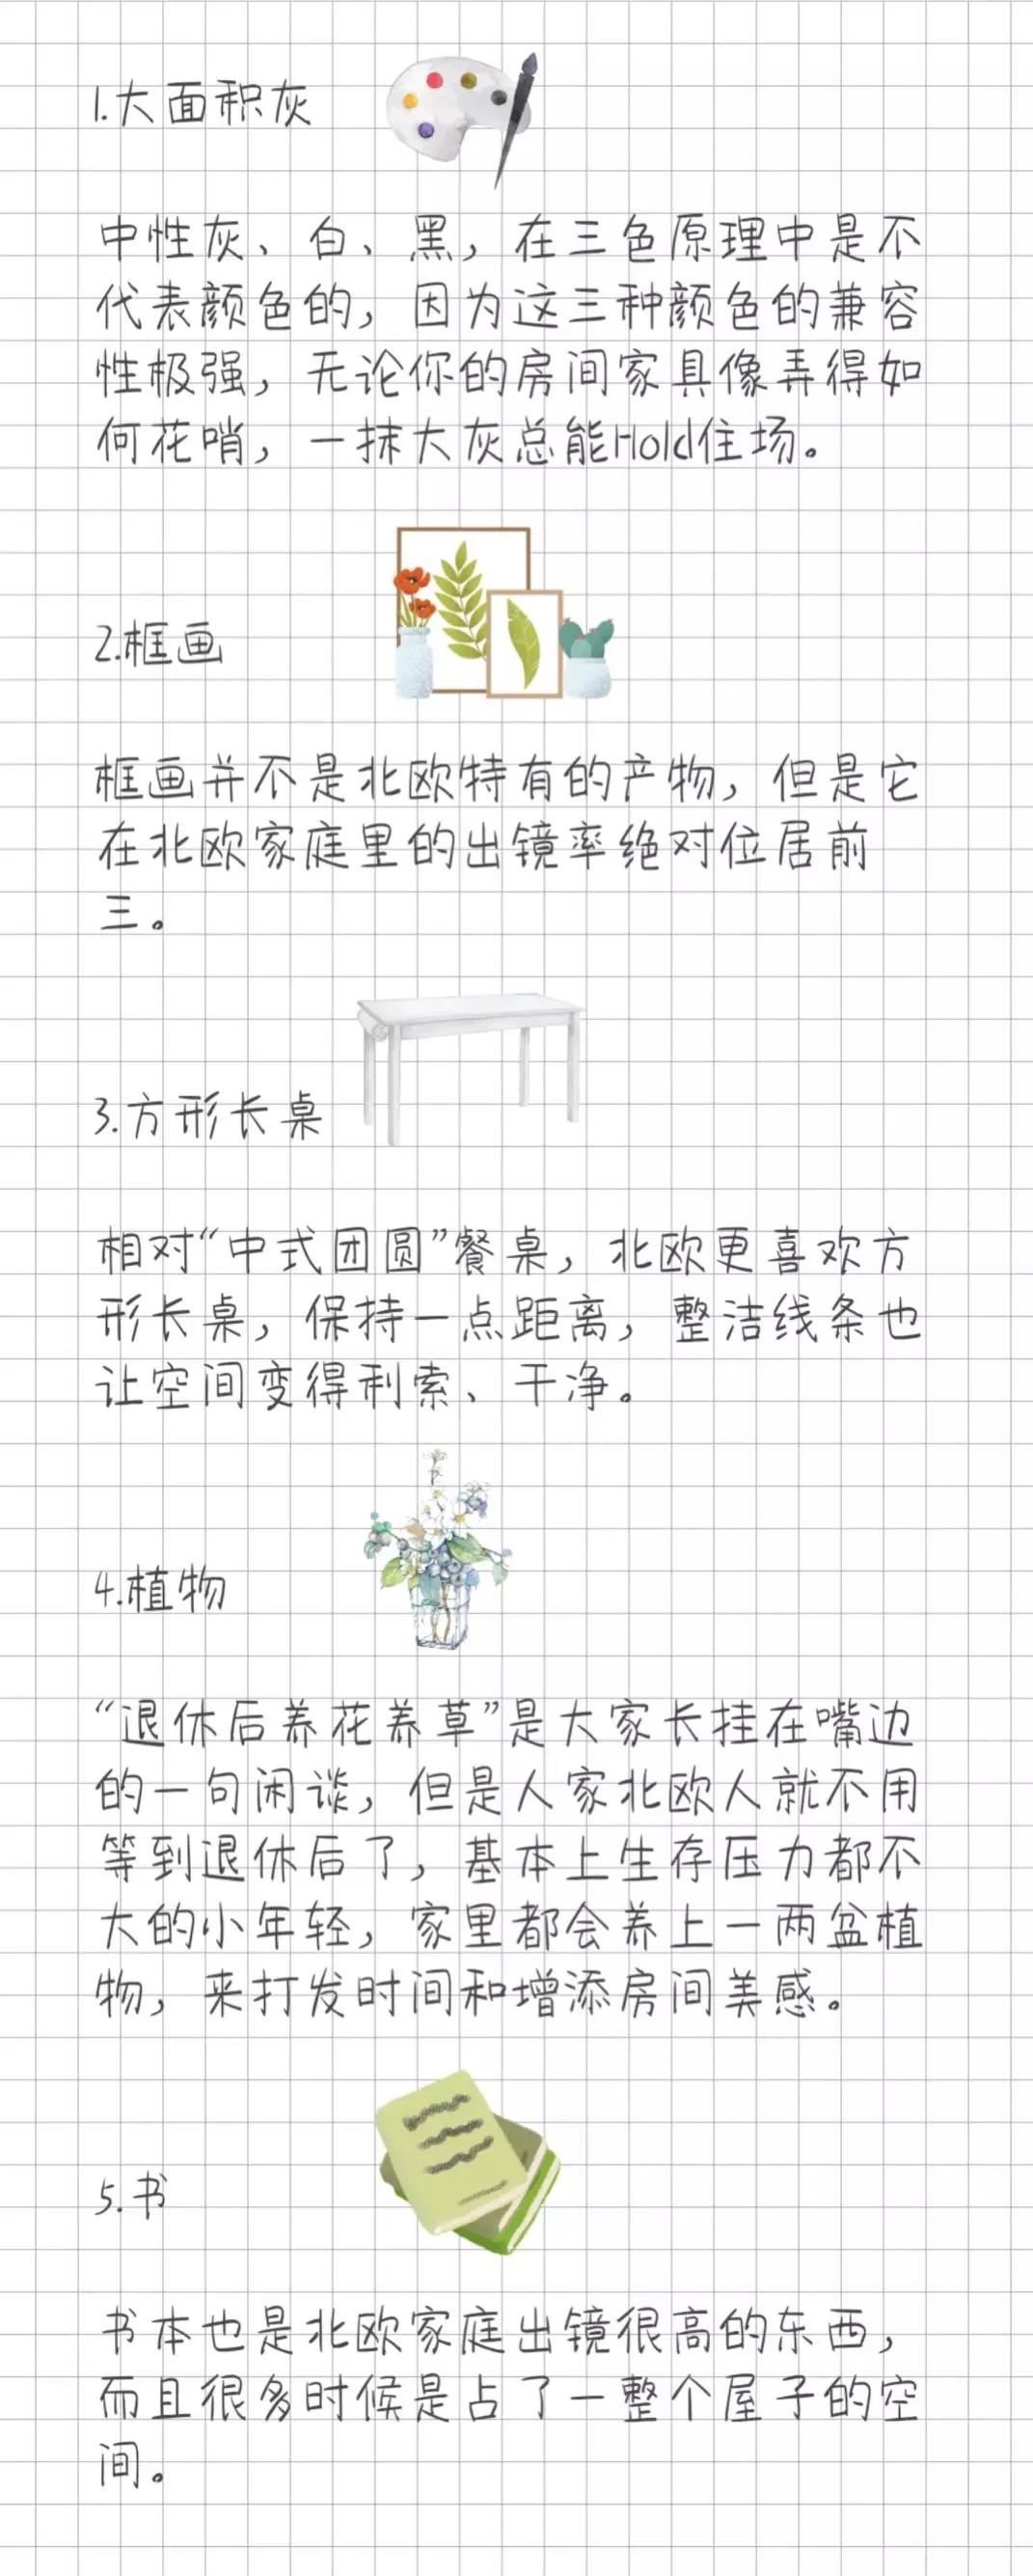 1.大面积灰
中性灰、白、黑，在三色原理中是不
代表颜色的，因为这三种颜色的兼容
性极强，无论你的房间家具像弄得如
何花哨，一抹大灰总能Hold住场。
2.框画
框画并不是北欧特有的产物，但是它
在北欧家庭里的出镜率绝对位居前
三。
3.方形长桌
相对“中式团圆”餐桌，北欧更喜欢方
形长桌，保持一点距离，整洁线条也
让空间变得利索、干净。
4.植物
“退休后养花养草”是大家长挂在嘴边
的一句闲谈，但是人家北欧人就不用
等到退休后了，基本上生存压力都不
大的小年轻，家里都会养上一两盆植
物，来打发时间和增添房间美感。
5.书
书本也是北欧家庭出镜很高的东西，
而且很多时候是占了一整个屋子的空
间。